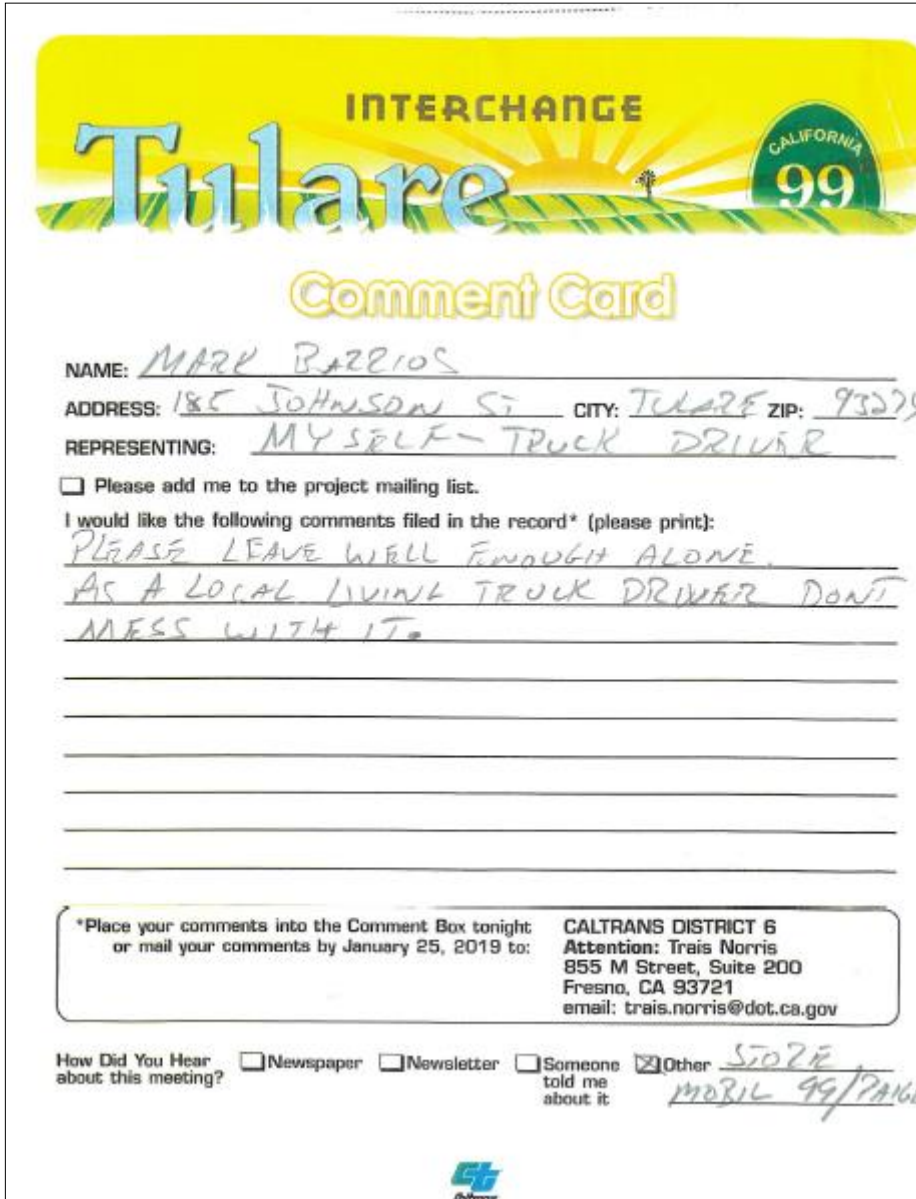 INTERCHANGE
Tulare
CALIFORNIA
99
Comment Card
NAME: MARK BARRIOS
ADDRESS: 185 JOHNSON ST CITY: TULARE ZIP: 93275
REPRESENTING: MYSELF - TRUCK DRIVER
Please add me to the project mailing list.
I would like the following comments filed in the record* (please print):
PLEASE LEAVE WELL ENOUGH ALONE.
AS A LOCAL LIVING TRUCK DRIVER DONT
MESS WITH IT.
*Place your comments into the Comment Box tonight
or mail your comments by January 25, 2019 to:
CALTRANS DISTRICT 6
Attention: Trais Norris
855 M Street, Suite 200
Fresno, CA 93721
email: trais.norris@dot.ca.gov
How Did You Hear
about this meeting?
Newspaper
Newsletter
Someone
told me
about it
Other STORE
MOBIL 99/PAIGE
Caltrans